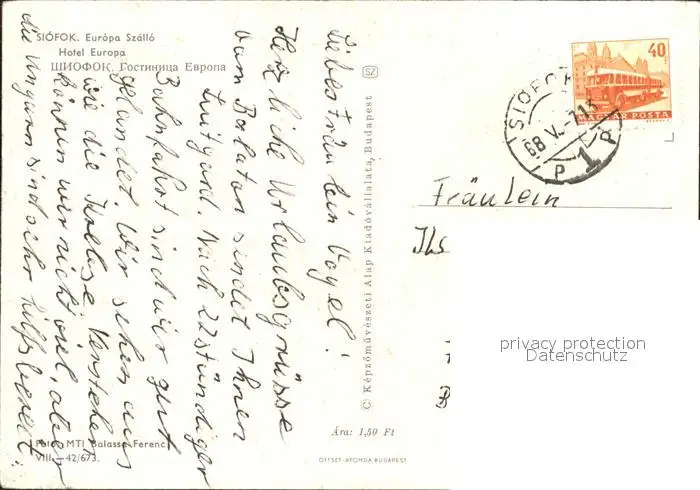 SIÓFOK. Európa Szálló
Hotel Europa
ШИОФОК. Гостиница Европа
SZ
Liebes Fräulein Vogel!
Herzliche Urlaubsgrüsse
vom Balaton sindet Ihnen
Luitgard. Nach 22stündiger
Bahnfahrt sind wir gut
gelandet. Wir sehen aus
wie die Krebse. Verstehen
können wir nicht viel, aber
die Ungarn sind sehr hilfsbereit.
Foto: MTI Balassa Ferenc
VIII.—42/673.
© Képzőművészeti Alap Kiadóvállalata, Budapest
Ára: 1,50 Ft
OFFSET-NYOMDA BUDAPEST
40
MAGYAR POSTA
SIÓFOK
68 V.
1
P P
Fräulein
privacy protection
Datenschutz